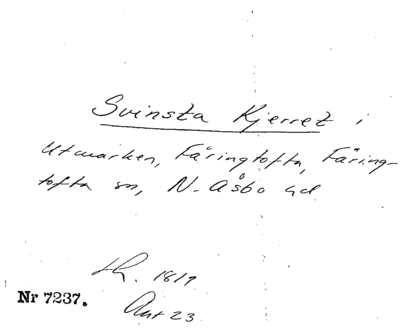 Svinsta Kjerret i
Utmarken, Färingtofta, Färing-
tofta sn, N. Åsbo hd
1819
Nr 7237. Akt 23